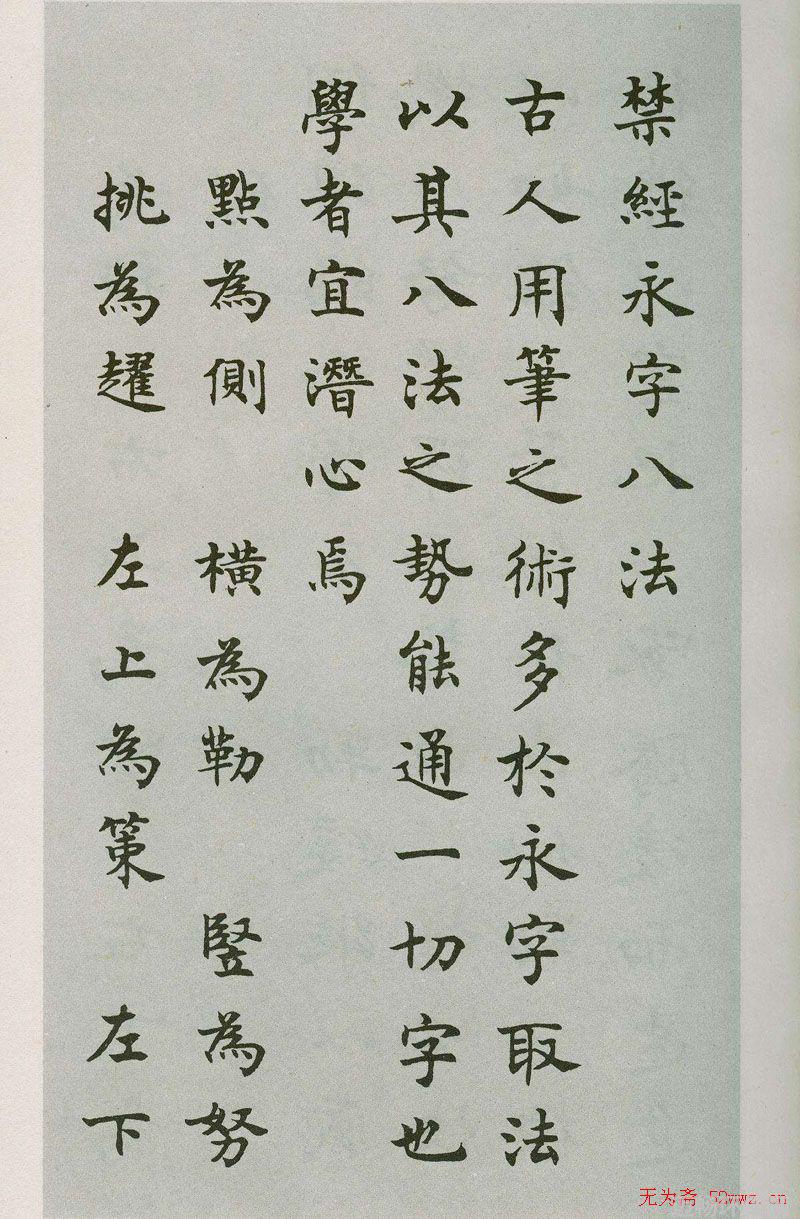 禁經永字八法
古人用筆之術多於永字取法
以其八法之勢能通一切字也
學者宜潛心焉
點為側 橫為勒 竪為努
挑為趯 左上為策 左下
无为斋 52wwz.cn